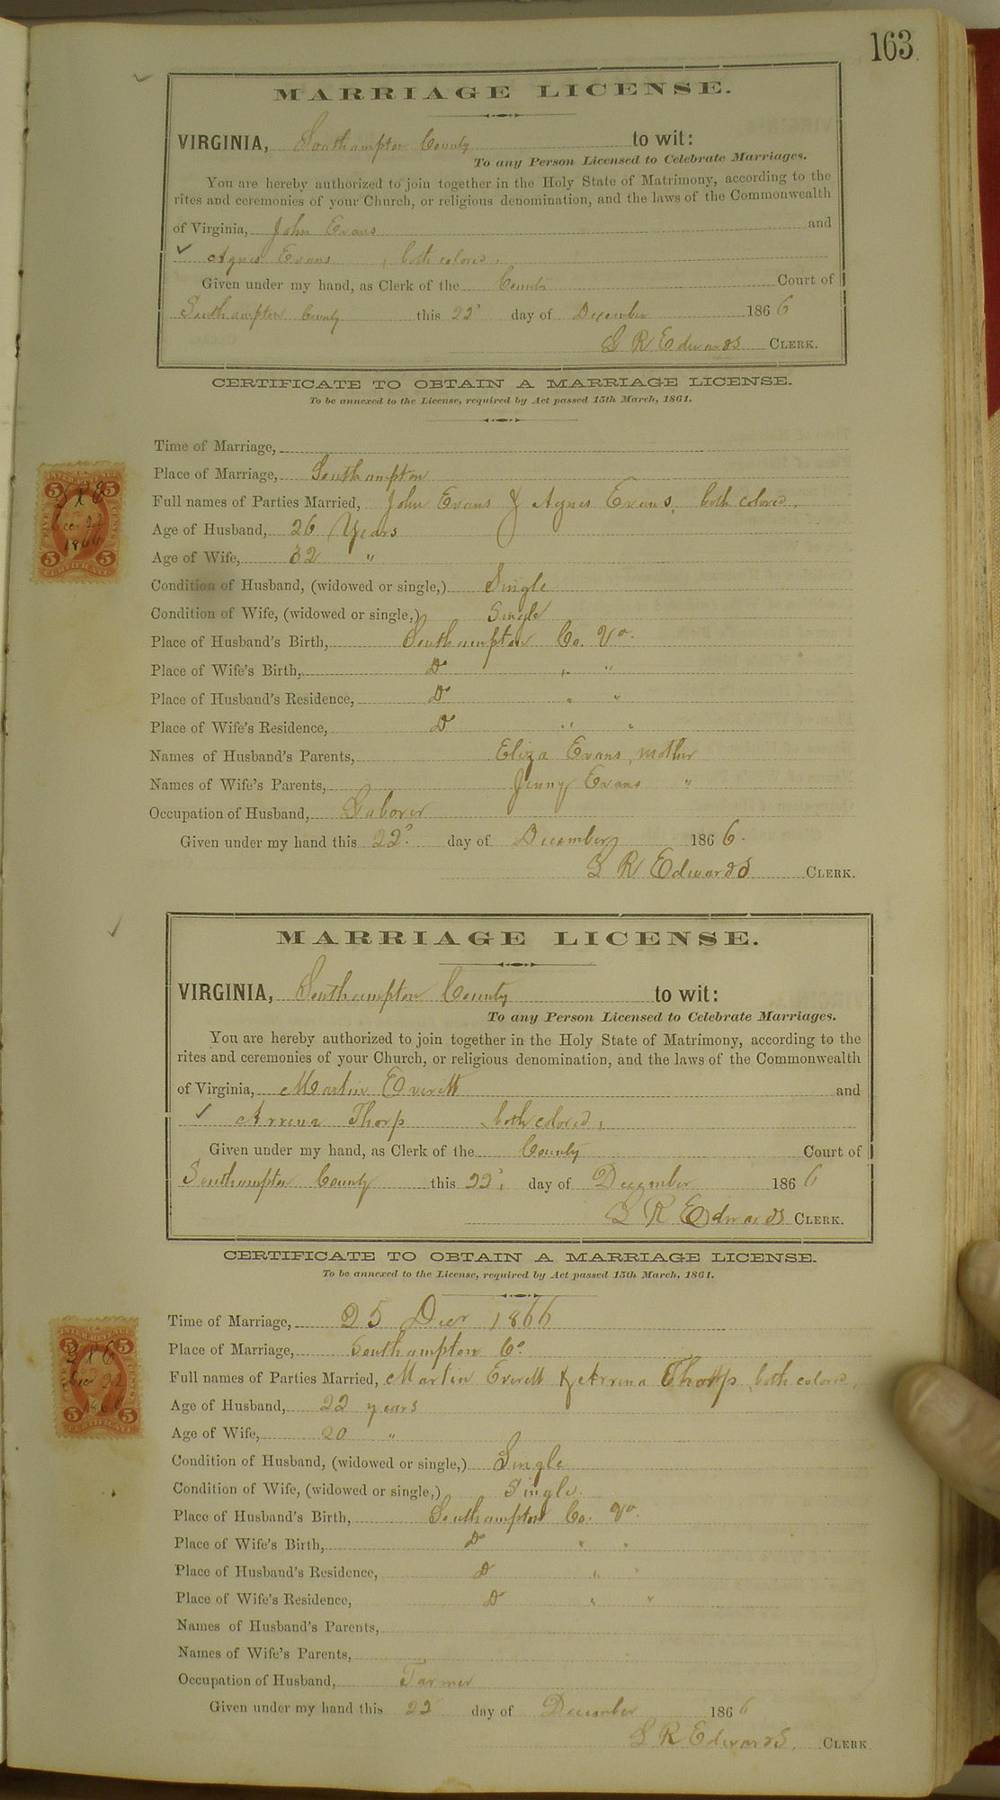 163
MARRIAGE LICENSE.
VIRGINIA, Southampton County to wit:
To any Person Licensed to Celebrate Marriages.
You are hereby authorized to join together in the Holy State of Matrimony, according to the
rites and ceremonies of your Church, or religious denomination, and the laws of the Commonwealth
of Virginia, John Evans and
Agnes Evans , both colored,
Given under my hand, as Clerk of the County Court of
Southampton County this 22d day of December 1866
L R Edwards CLERK.
CERTIFICATE TO OBTAIN A MARRIAGE LICENSE.
To be annexed to the License, required by Act passed 15th March, 1861.
Time of Marriage,
Place of Marriage, Southampton
Full names of Parties Married, John Evans & Agnes Evans, both colored.
Age of Husband, 26 Years
Age of Wife, 32 "
Condition of Husband, (widowed or single,) Single
Condition of Wife, (widowed or single,) Single
Place of Husband's Birth, Southampton Co. Va.
Place of Wife's Birth, Do " "
Place of Husband's Residence, Do " "
Place of Wife's Residence, Do " "
Names of Husband's Parents, Eliza Evans, mother
Names of Wife's Parents, Jenny Evans "
Occupation of Husband, Laborer
Given under my hand this 22d day of December 1866.
L R Edwards CLERK.
5 5
L R E
Dec 22
1866
5 5
CERTIFICATE
MARRIAGE LICENSE.
VIRGINIA, Southampton County to wit:
To any Person Licensed to Celebrate Marriages.
You are hereby authorized to join together in the Holy State of Matrimony, according to the
rites and ceremonies of your Church, or religious denomination, and the laws of the Commonwealth
of Virginia, Martin Everett and
Arrena Thorp both colored,
Given under my hand, as Clerk of the County Court of
Southampton County this 22d, day of December 1866
L R Edwards CLERK.
CERTIFICATE TO OBTAIN A MARRIAGE LICENSE.
To be annexed to the License, required by Act passed 15th March, 1861.
Time of Marriage, 25 Decr 1866
Place of Marriage, Southampton Co.
Full names of Parties Married, Martin Everett & Arrena Thorp, both colored,
Age of Husband, 22 years
Age of Wife, 20 "
Condition of Husband, (widowed or single,) Single
Condition of Wife, (widowed or single,) Single.
Place of Husband's Birth, Southampton Co. Va.
Place of Wife's Birth, Do " "
Place of Husband's Residence, Do " "
Place of Wife's Residence, Do " "
Names of Husband's Parents,
Names of Wife's Parents,
Occupation of Husband, Farmer
Given under my hand this 22 day of December 1866
L R Edwards. CLERK
5 5
L R E
Dec 22
1866
5 5
CERTIFICATE